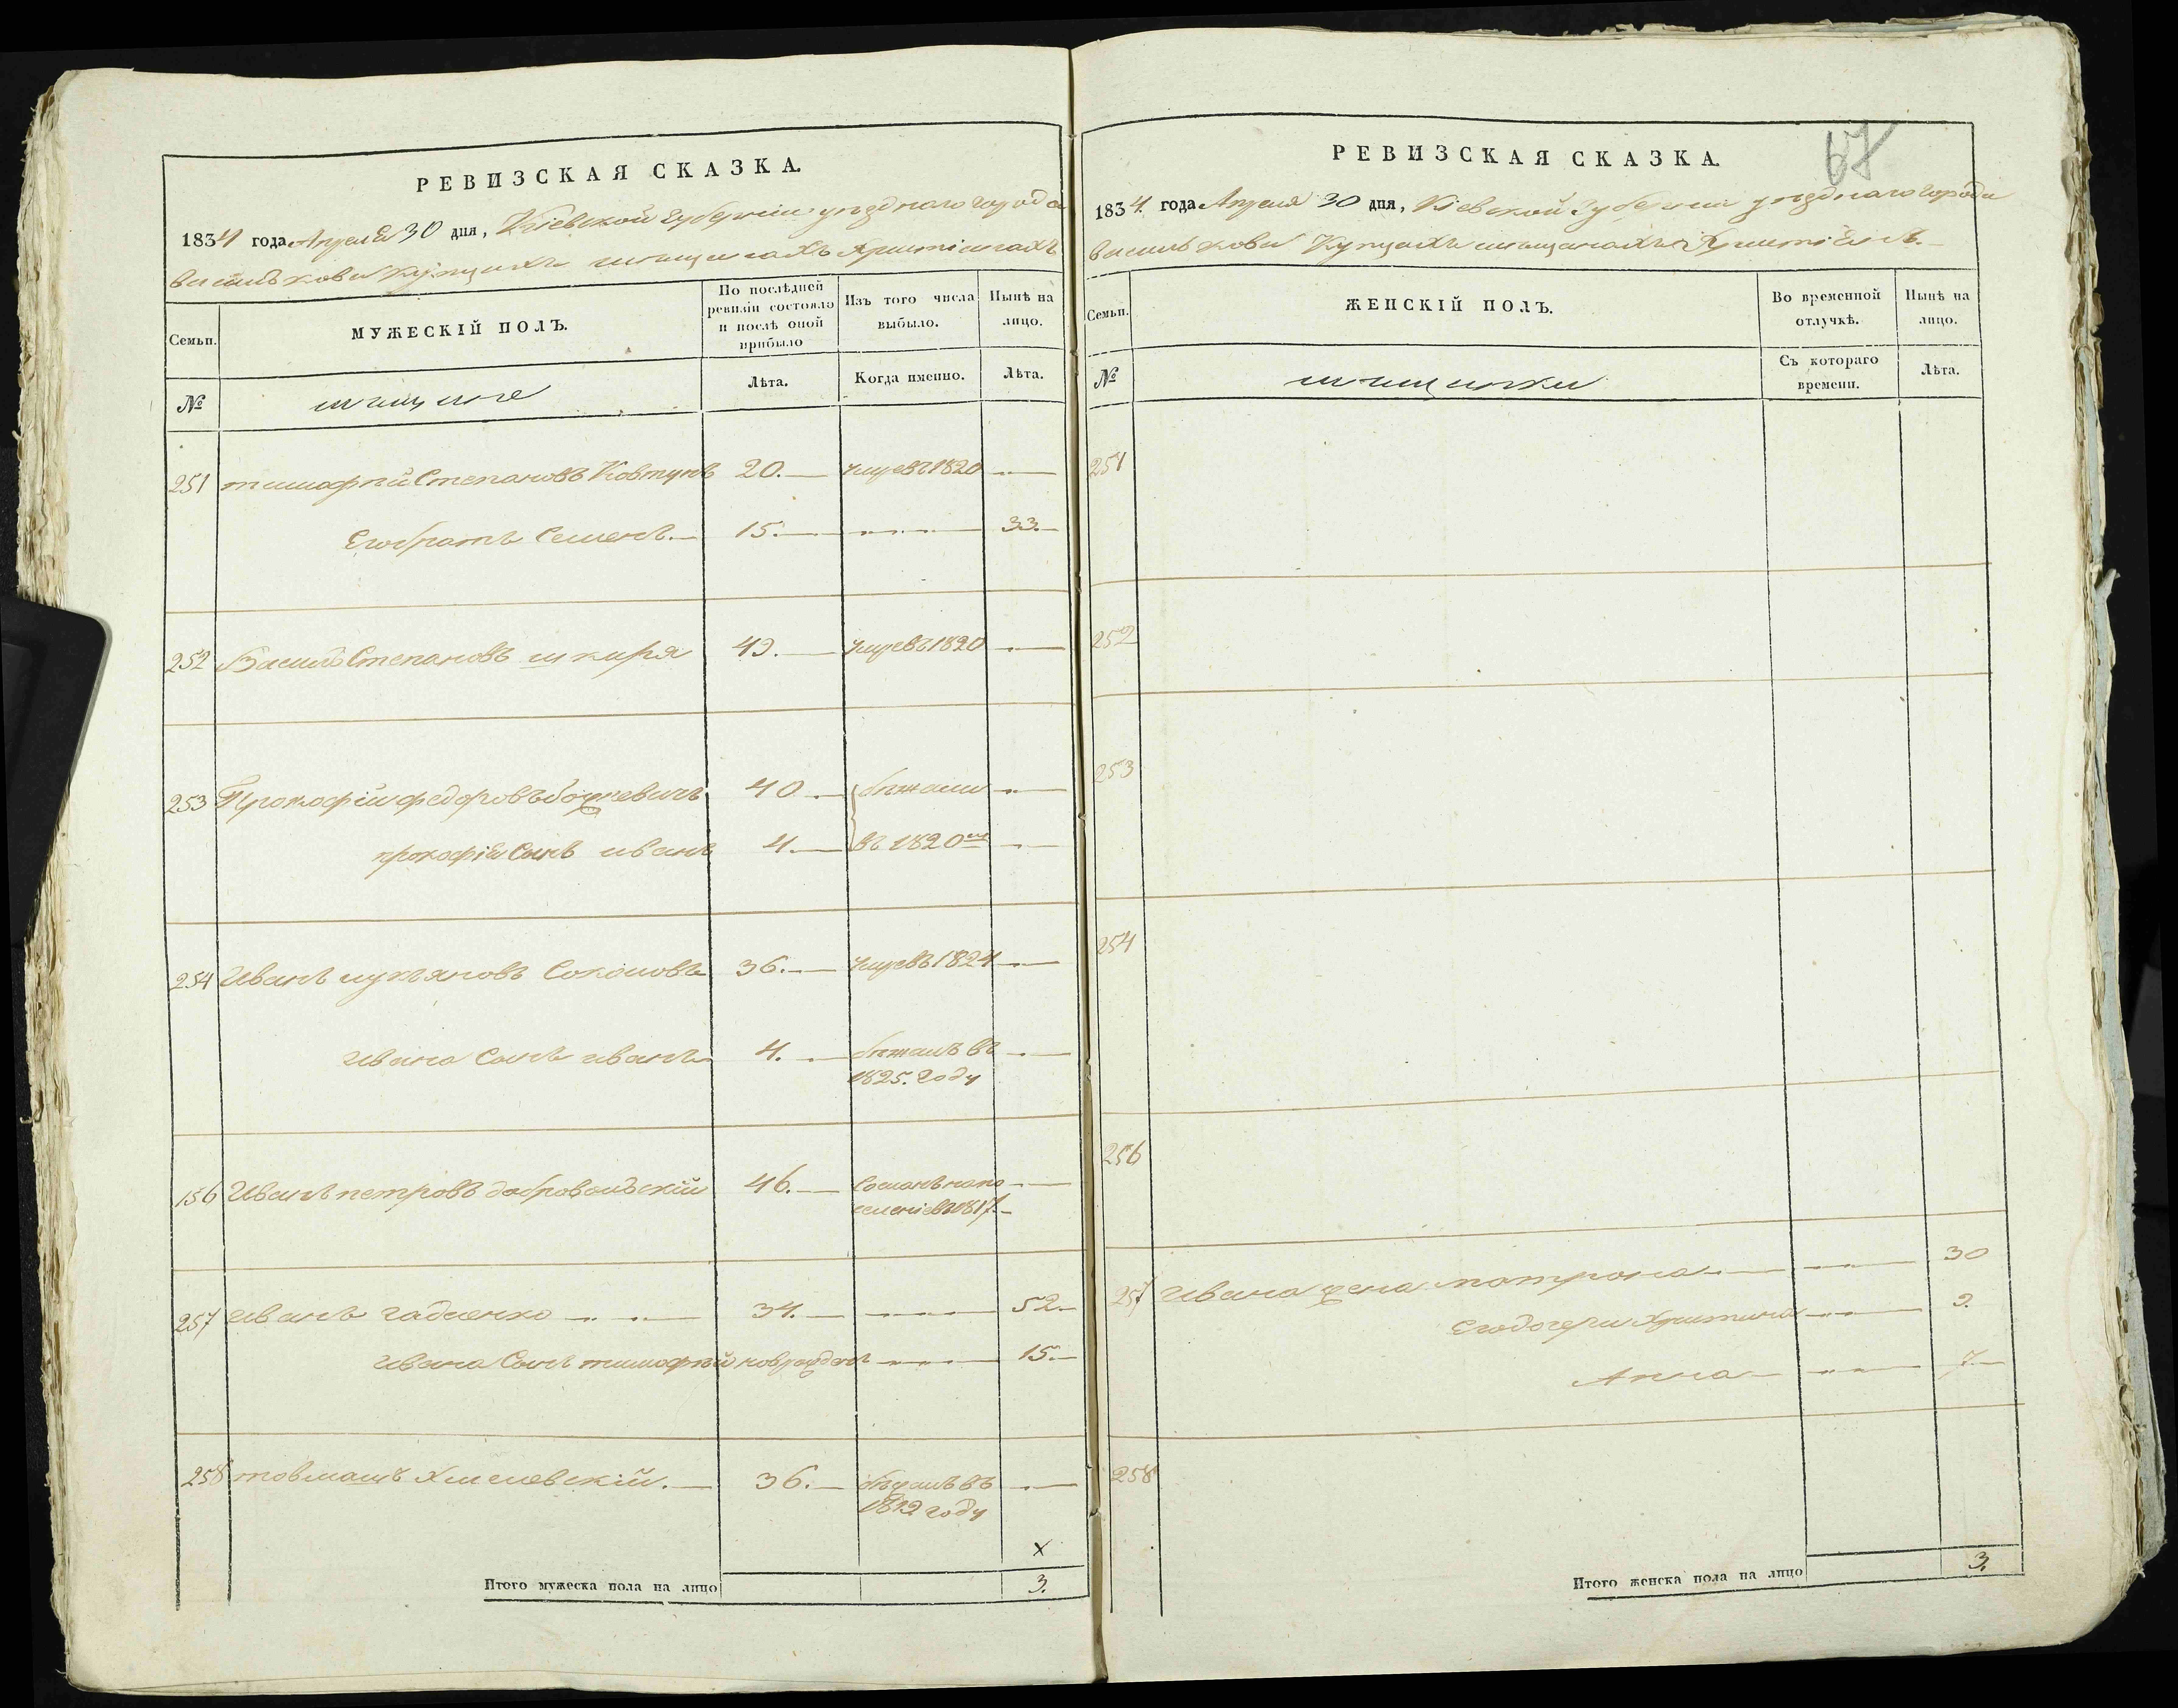 РЕВИЗСКАЯ СКАЗКА.
1834 года Апреля 30 дня, Кіевской Губерніи уѣзднаго города
василькова Купцахъ мѣщанахъ Христіанахъ
Семьи.
МУЖЕСКІЙ ПОЛЪ.
По послѣдней ревизіи состояло и послѣ оной прибыло
Изъ того числа выбыло.
Нынѣ на лицо.
№
мѣщане
Лѣта.
Когда именно.
Лѣта.
251 тимофѣй Степановъ Ковтунъ 20. умре въ 1820
Его братъ Семенъ. 15. 33.
252 Василь Степановъ шкиря 43. умре въ 1820
253 Прокофій федоровъ 40. бѣжали
прокофія Сынъ иванъ 4. въ 1820мъ
254 Иванъ лукьяновъ Соколовъ 36. умре въ 1824
ивана Сынъ иванъ 4. бѣжалъ въ
1825. году
156 Иванъ петровъ добровольскій 46. Сосланъ на по
селеніе въ 1817.
257 иванъ гадненко 34. 52.
ивана Сынъ тимофѣй новрожденъ 15.
258 товмашъ хмелевскій. 36. бѣжалъ въ
1812 году
х
Итого мужеска пола на лицо 3.
67
РЕВИЗСКАЯ СКАЗКА.
1834. года Апреля 30 дня, Кіевской Губерніи уѣзднаго города
василькова Купцахъ мѣщанахъ
Семьи.
ЖЕНСКІЙ ПОЛЪ.
Во временной отлучкѣ.
Нынѣ на лицо.
№
мѣщанки
Съ котораго времени.
Лѣта.
251
252
253
254
256
257 Ивана жена матрона 30
Его дочери Христина 9.
Анна 7.
258
Итого женска пола на лицо 3.